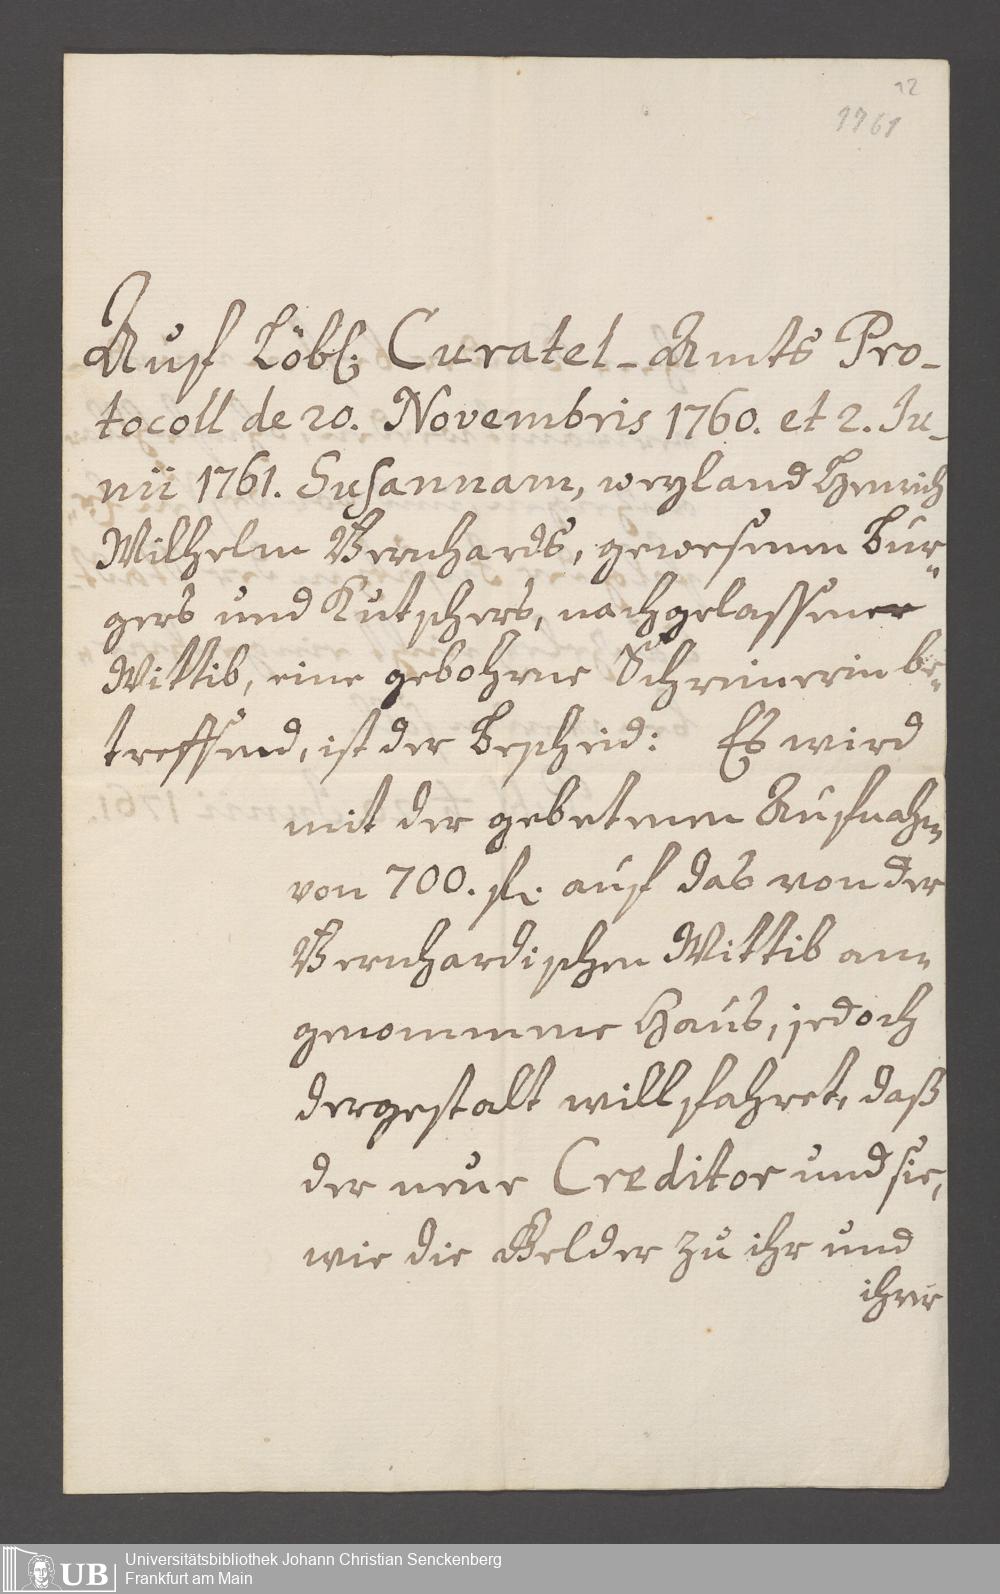 12
1761
Auf Löbl: Curatel-Amts Pro-
tocoll de 20. Novembris 1760. et 2. Ju-
nii 1761. Susannam, weyland Henrich
Wilhelm Bernhards, gewesenen Bür-
gers und Kutschers, nachgelassener
Wittib, eine gebohrne Schreinerin be-
treffend, ist der Bescheid: Es wird
mit der gebetenen Aufnahm
von 700. fl. auf das von der
Bernhardischen Wittib an-
genommene Haus, jedoch
dergestalt willfahret, daß
der neue Creditor und sie,
wie die Gelder zu ihr und
ihrer
UB
Universitätsbibliothek Johann Christian Senckenberg
Frankfurt am Main